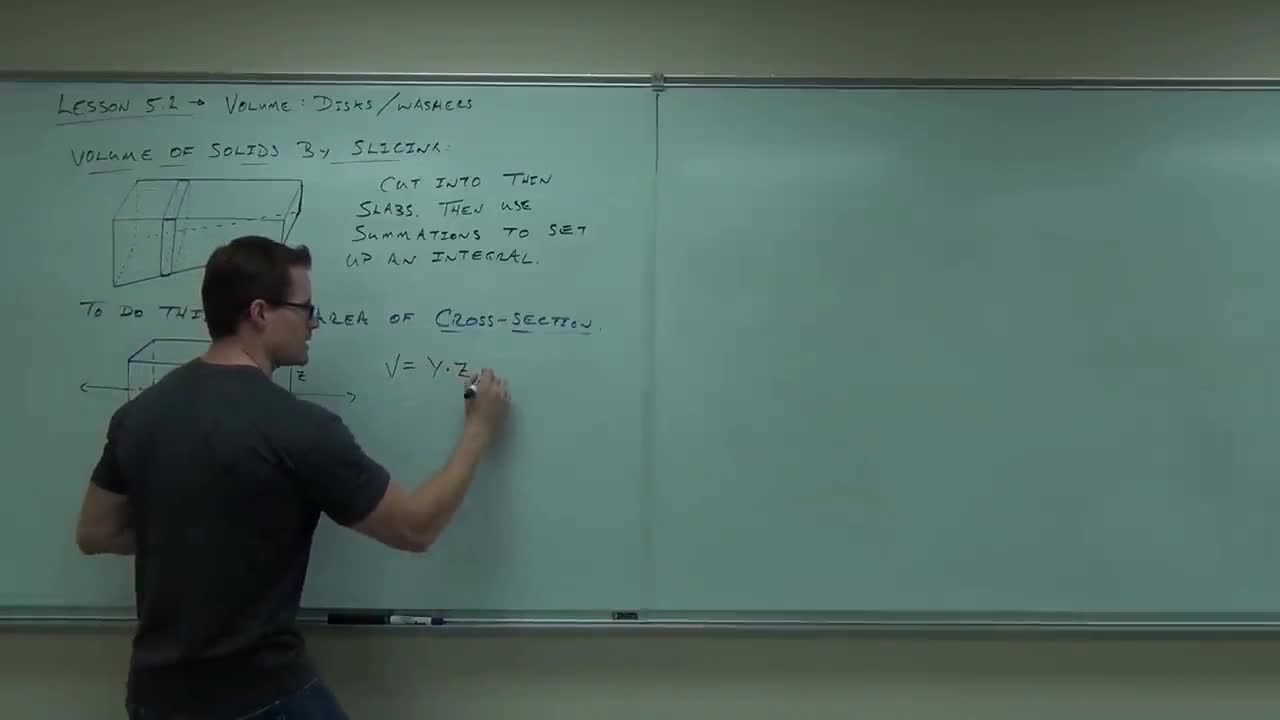 LESSON 5.2 → VOLUME: DISKS/WASHERS
VOLUME OF SOLIDS BY SLICING:
CUT INTO THIN
SLABS. THEN USE
SUMMATIONS TO SET
UP AN INTEGRAL.
TO DO AREA OF CROSS-SECTION.
Z
V = Y · Z